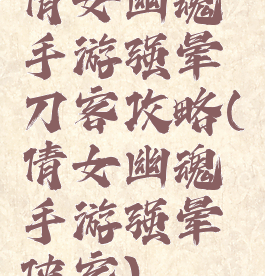 倩女幽魂
手游强晕
刀客攻略(
倩女幽魂
手游强晕